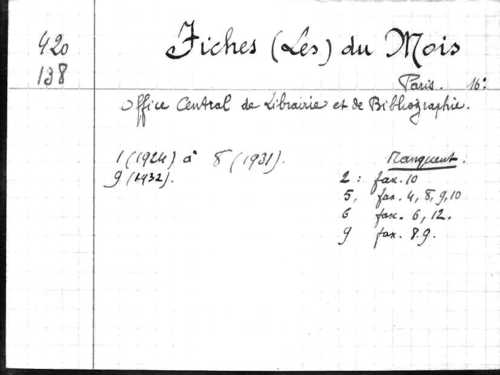 420
138
Fiches (Les) du Mois
Paris. 16:
Office Central de Librairie et de Bibliographie.
1 (1924) à 8 (1931).
9 (1932).
Manquent:
2: fax. 10
5, fax. 4, 8, 9, 10
6 fax. 6, 12.
9 fax. 8. 9.